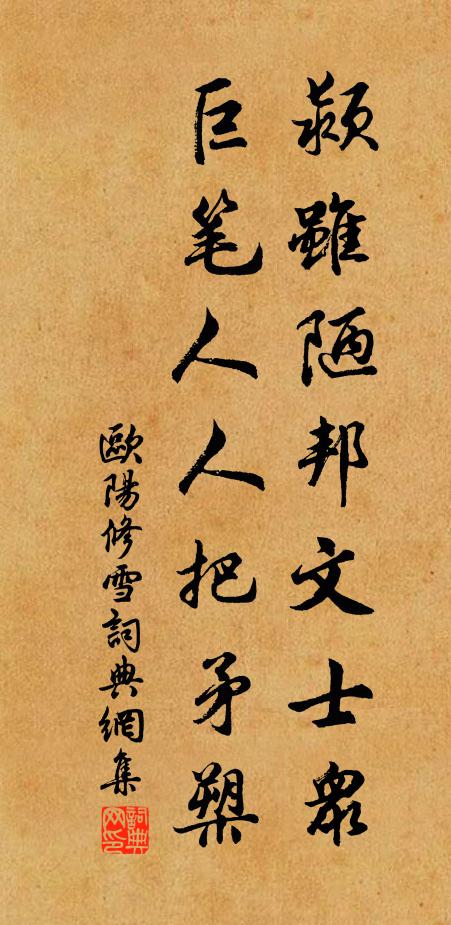 颍雖陋邦文士衆
巨笔人人把矛槊
歐陽修雪詞典網集
詞典網印